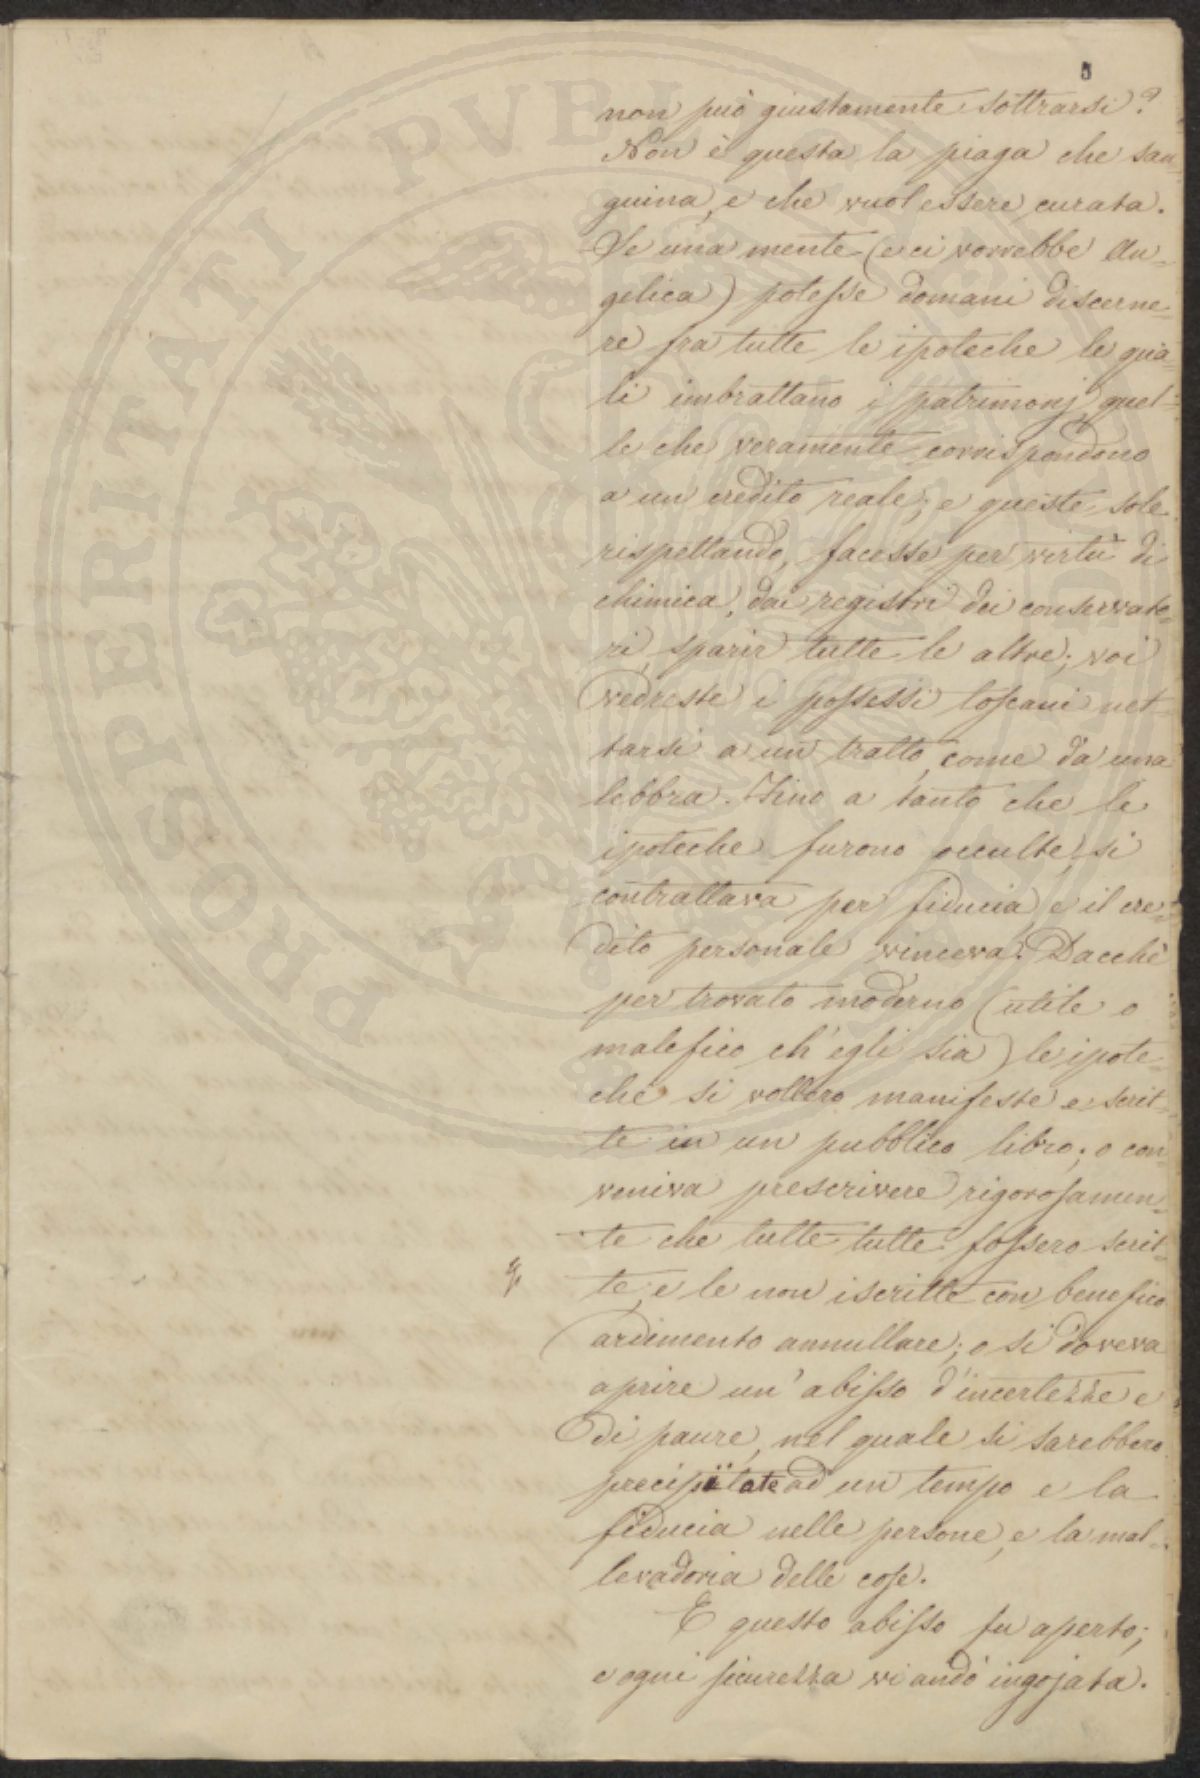 5
non può giustamente sottrarsi?
Non è questa la piaga che san-
guina, e che vuol essere curata.
Se una mente (e ci vorrebbe An-
gelica) potesse domani discerne-
re fra tutte le ipoteche le qua-
li imbrattano i patrimonj quel-
le che veramente corrispondono
a un credito reale; e queste sole
rispettando, facesse per virtù di
chimica, dai registri dei conservato-
ri sparir tutte le altre; voi
vedreste i possessi toscani net-
tarsi a un tratto, come da una
lebbra. Fino a tanto che le
ipoteche furono occulte, si
contrattava per fiducia, e il cre-
dito personale vinceva. Dacchè
per trovato moderno (utile o
malefico ch'egli sia) le ipote-
che si vollero manifeste e scrit-
te in un pubblico libro; o con-
veniva prescrivere rigorosamen-
te che tutte tutte fossero scrit-
te, e le non iscritte con benefico
ardimento annullare; o si doveva
aprire un'abisso d'incertezze e
di paure, nel quale si sarebbero
precipitate ad un tempo e la
fiducia nelle persone, e la mal-
levadoria delle cose.
E questo abisso fu aperto;
e ogni sicurezza vi andò ingojata.
PROSPERITATI PVBLICAE